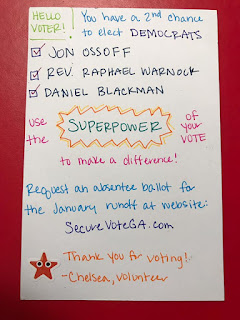 HELLO VOTER! You have a 2nd chance
to elect DEMOCRATS
JON OSSOFF
REV. RAPHAEL WARNOCK
DANIEL BLACKMAN
use the SUPERPOWER of your VOTE
to make a difference!
Request an absentee ballot for
the January runoff at website:
SecureVoteGA.com
Thank you for voting!
-Chelsea, volunteer